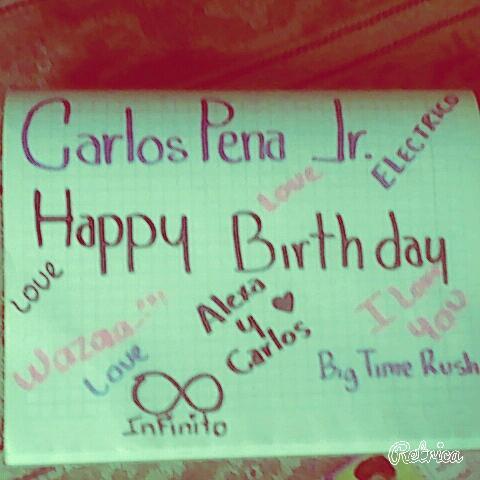 Carlos Pena Jr.
ELECTRICO
LOVE
Happy Birthday
LOVE
Alexa
y
Carlos
I Love
You
Wazaa
Love
Big Time Rush
Infinito
Retrica